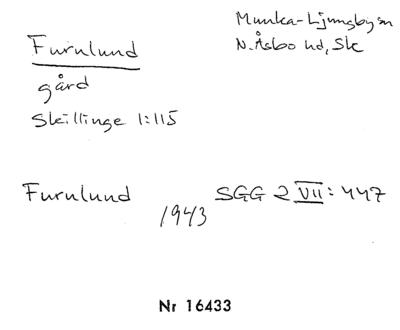 Furulund
Munka-Ljungby sn
N. Åsbo hd, Sk
gård
Skillinge 1:115
Furulund 1943 SGG 2 VII: 447
Nr 16433